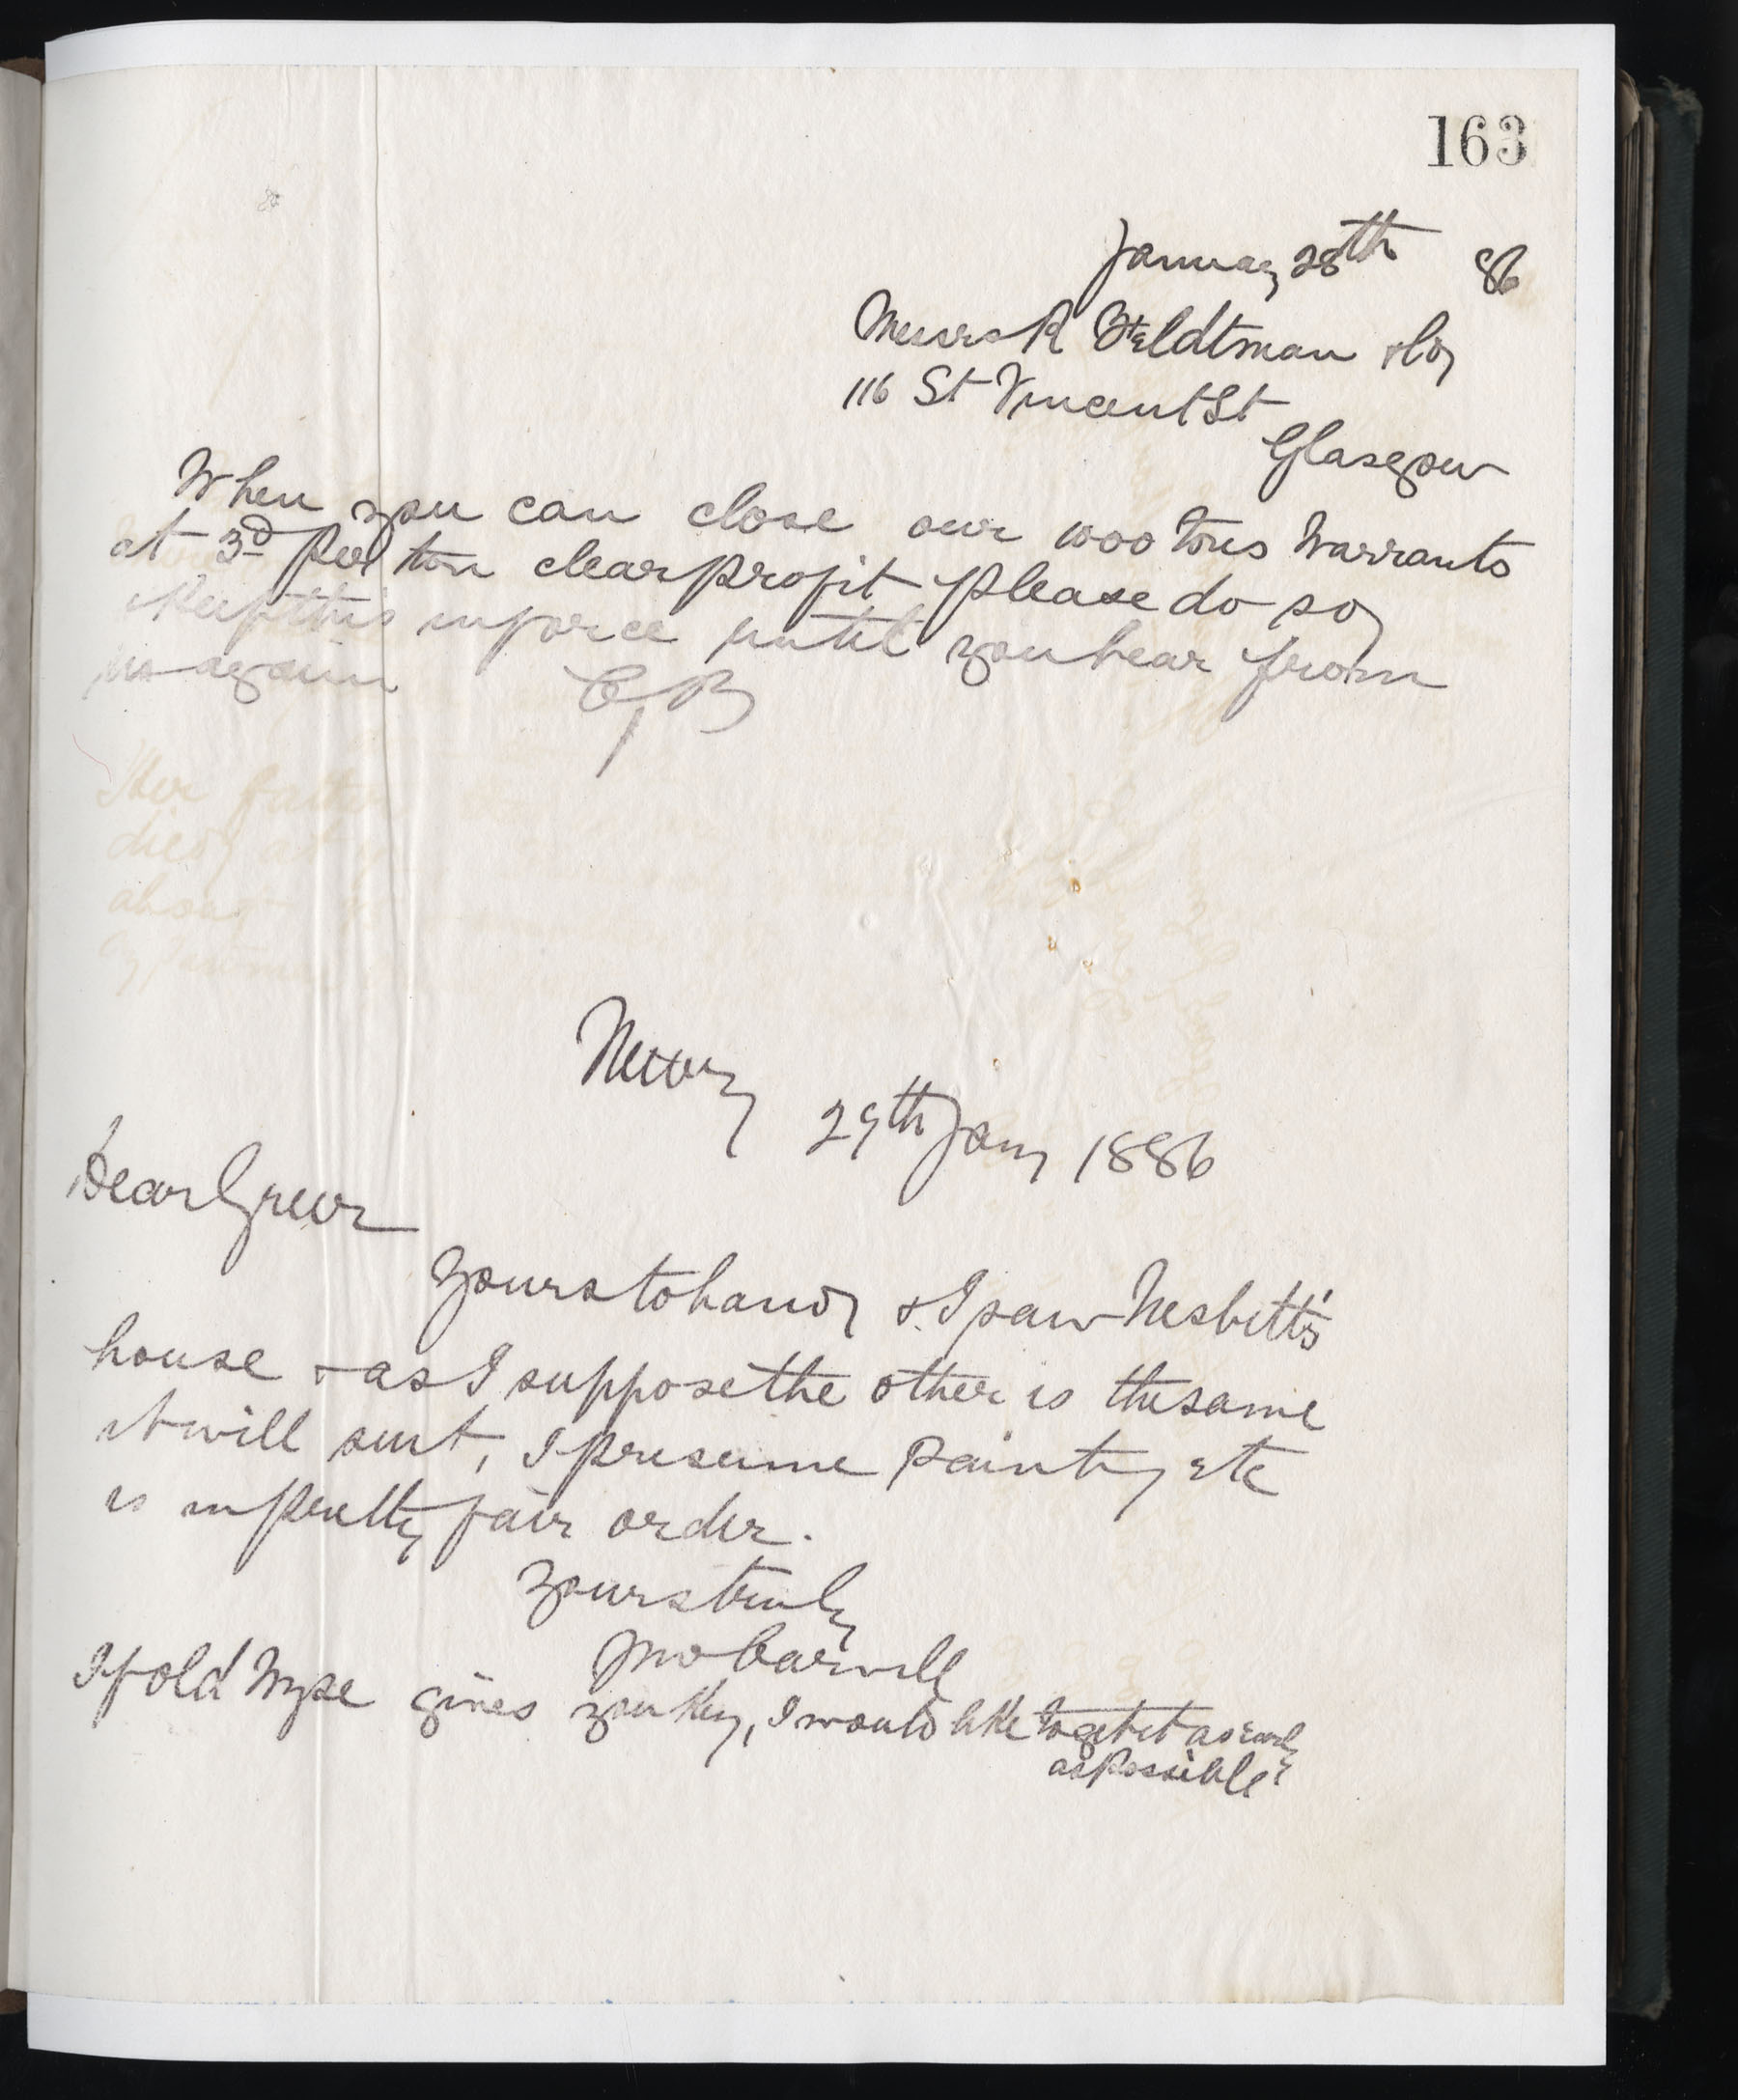 163
January 28th 86
Messrs R Feldtman & Co
116 St Vincent St
Glasgow
When you can close our 1000 tons Warrants
at 3d per ton clear profit please do so
Keep this in force until you hear from
us again C, B
Newry
29th Jany 1886
Dear Greer
Yours to hand & I saw Nesbitt's
house & as I suppose the other is the same
it will suit, I presume paint, etc
is in pretty fair order.
Yours truly
Jno Carvill
If old Wyse gives you key, I would like to get it as early
as possible